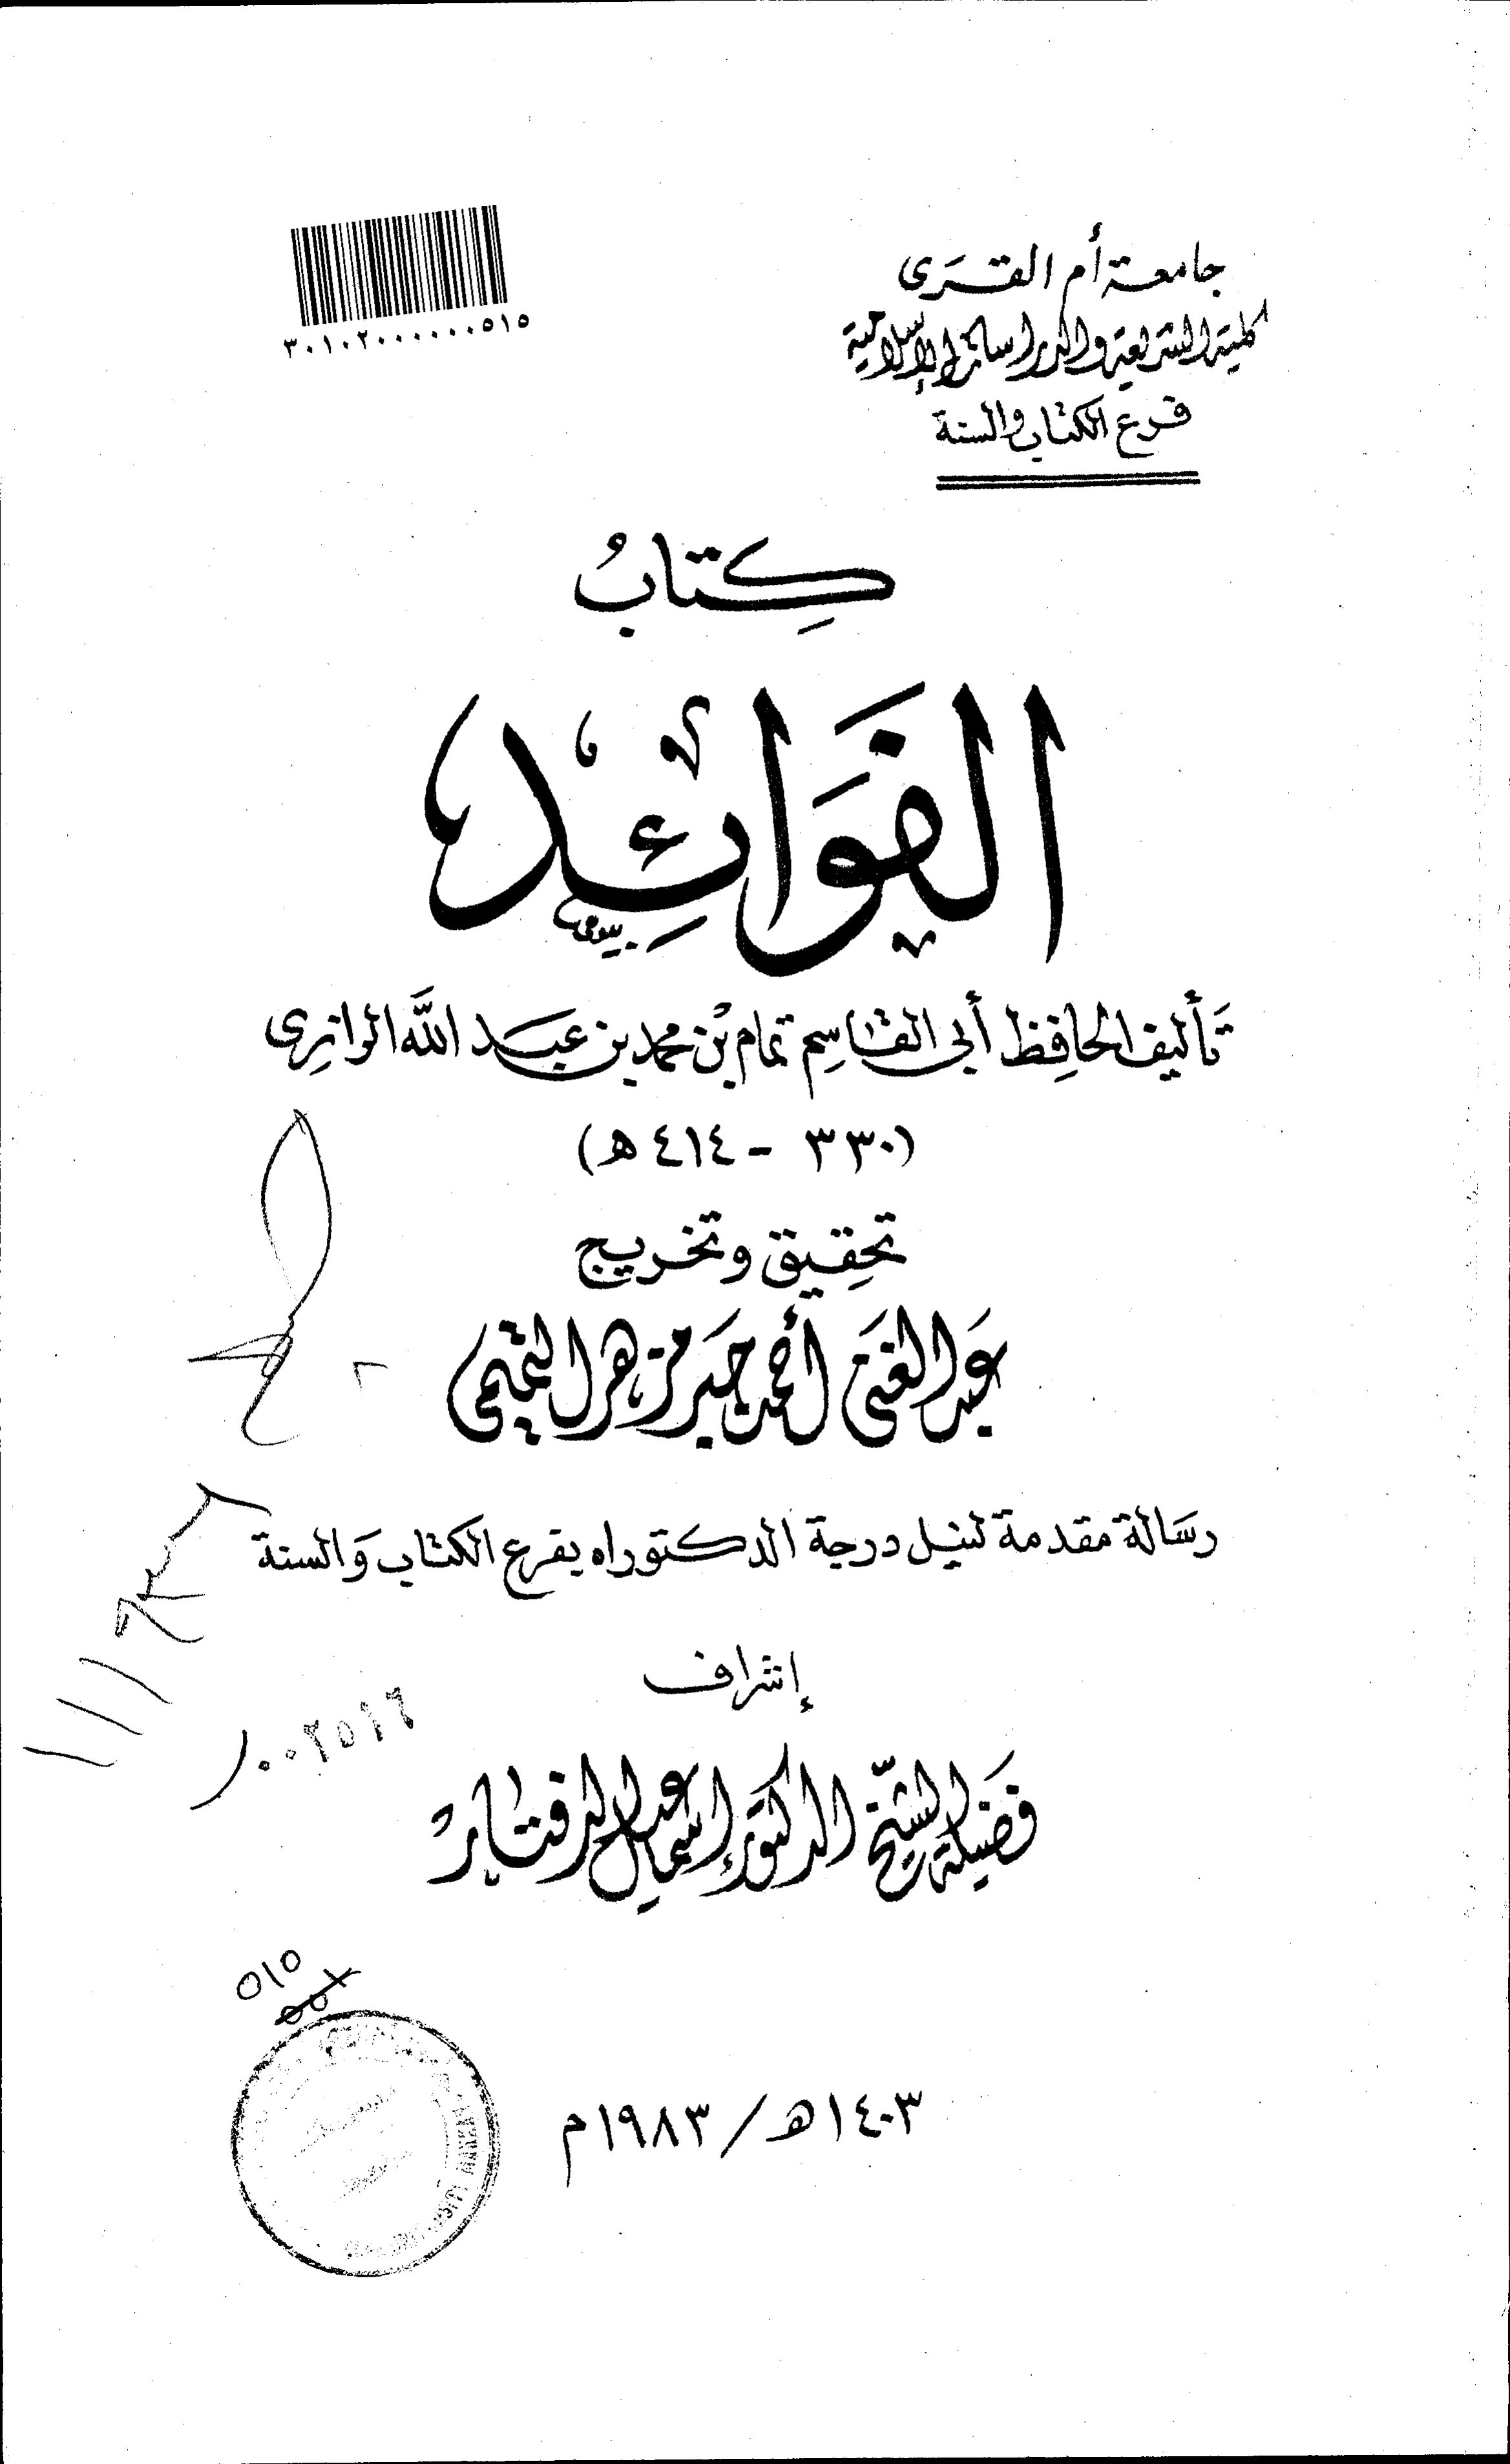 جامعة أم القرى
كلية الشريعة والدراسات الإسلامية
فرع الكتاب والسنة
٣٠١٠٢٠٠٠٠٠٠٥١٥
كِتابُ
الفَوَائِد
تَأليف الحافِظ أبي القاسِم تمام بْن محمد بن عبد اللَّه الرازِي
(٣٣٠ - ٤١٤ هـ)
تحقِيق وتخريج
عَبد الغَني أحمد جَبر مزهر التميمي
رسَالة مقدمة لنيل درجة الدكتوراه بفرع الكتاب وَالسنة
إشراف
فَضيلة الشّيخ الدكتور إسماعيل الدفتار
٠٠٢٥١٦
٥١٥
١٤٠٣هـ / ١٩٨٣م